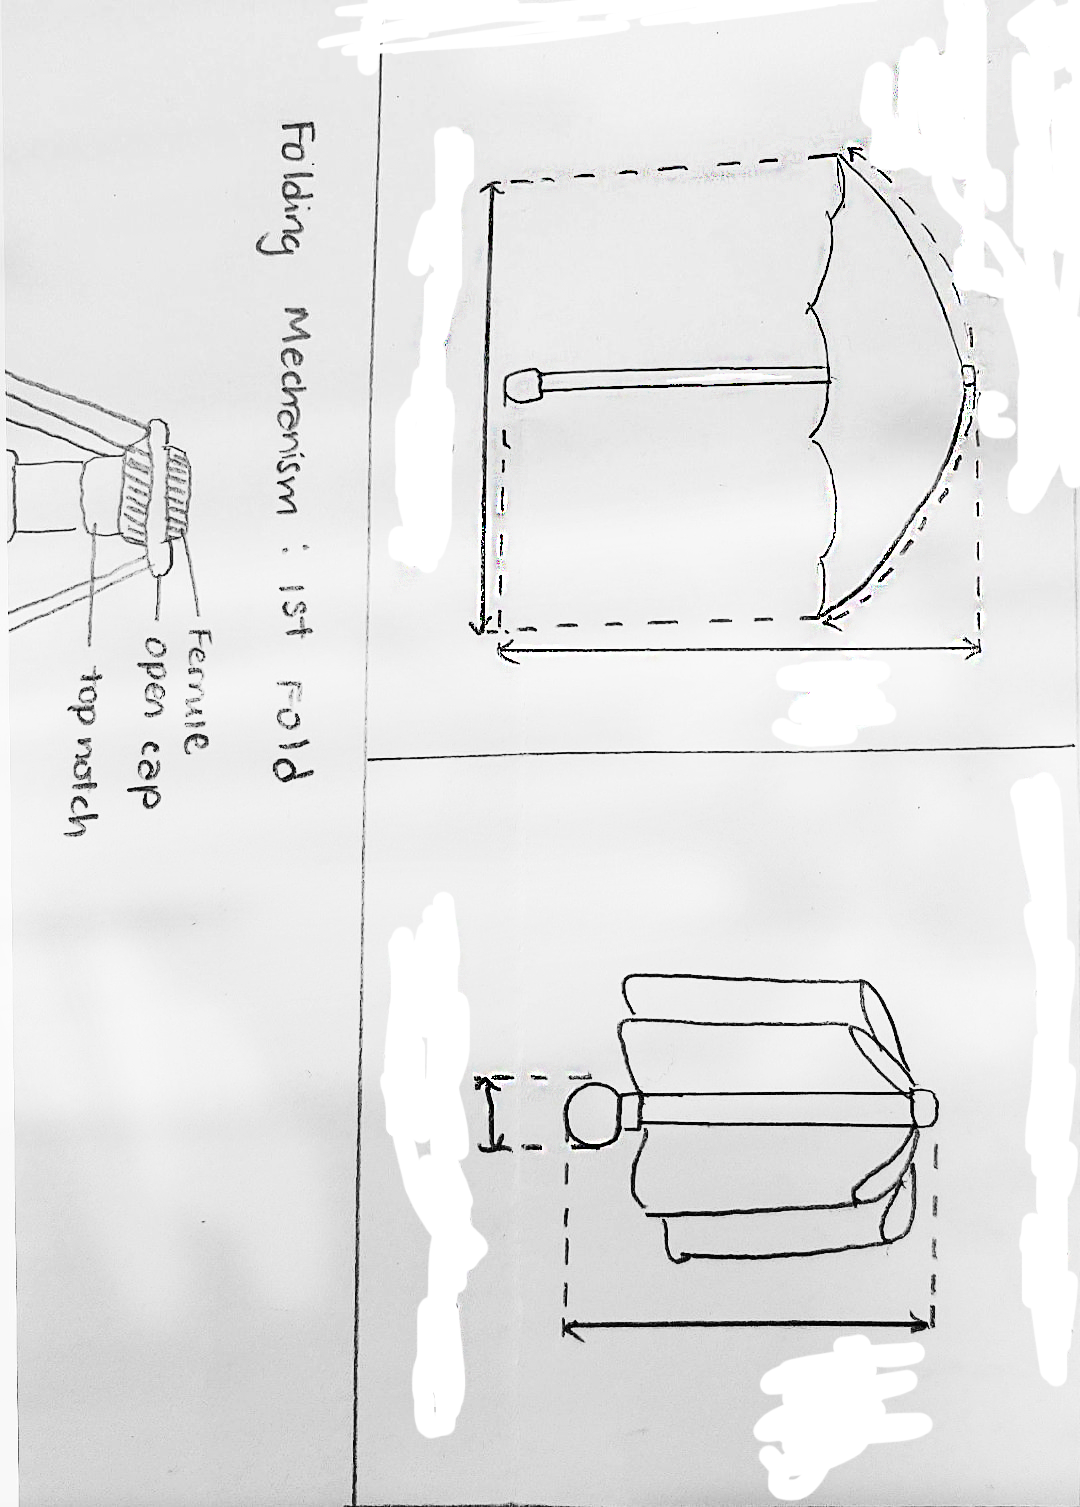 Folding Mechanism : 1st Fold
Ferrule
open cap
top notch